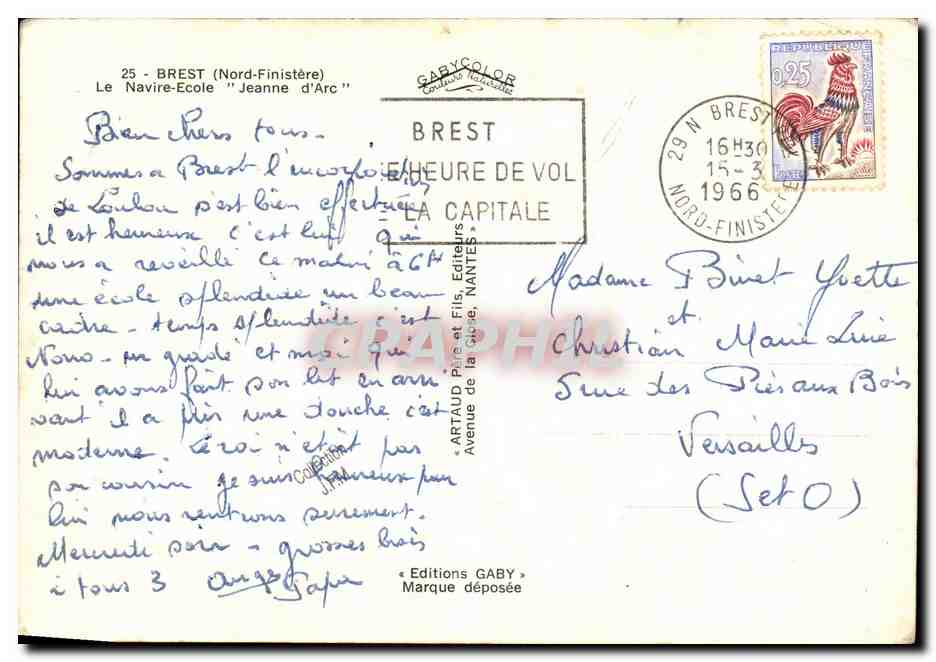 25 - BREST (Nord-Finistère)
Le Navire-Ecole "Jeanne d'Arc"
Bien chers tous -
Sommes a Brest l'incorporation
de Loulou s'est bien effectuée
il est heureux c'est lui qui
nous a reveillé ce matin à 6H
une école splendide un beau
cadre - temps splendide c'est
Nono - un gradé et moi qui
lui avons fait son lit en arri
vant il a pris une douche c'est
moderne. Le roi n'était pas
son cousin je suis heureux pour
lui nous rentrons surement.
Mercredi soir - grosses bises
à tous 3 Papa
GABYCOLOR
Couleurs Naturelles
BREST
E HEURE DE VOL
LA CAPITALE
"ARTAUD Père et Fils, Editeurs
Avenue de la Close, NANTES"
Collection
J.F.M
CPAPHIL
« Editions GABY »
Marque déposée
REPUBLIQUE FRANÇAISE
0,25
29 N BREST
16H30
15-3
1966
NORD-FINISTERE
Madame Binet Yvette
et
Christian Marie Line
5 rue des Prés aux Bois
Versailles
(S et O)